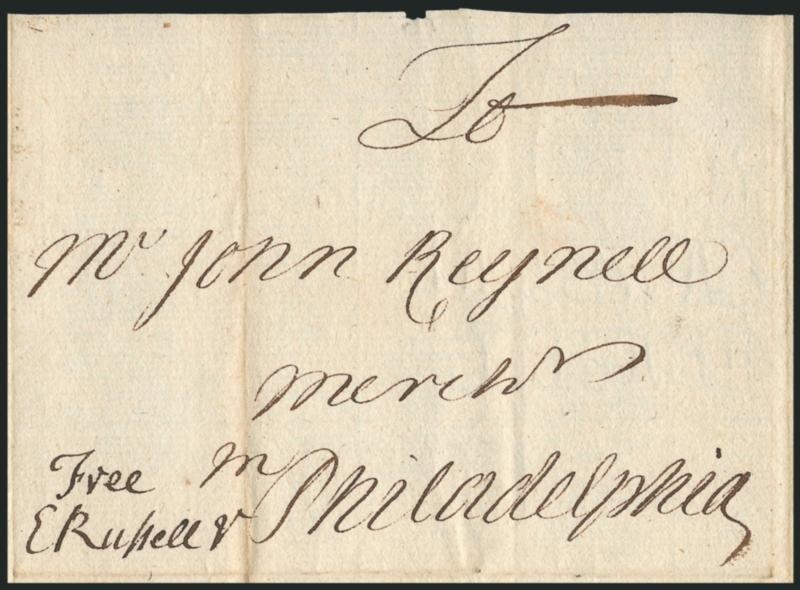 To
Mr John Reynell
Merch
In Philadelphia
Free
E Russell